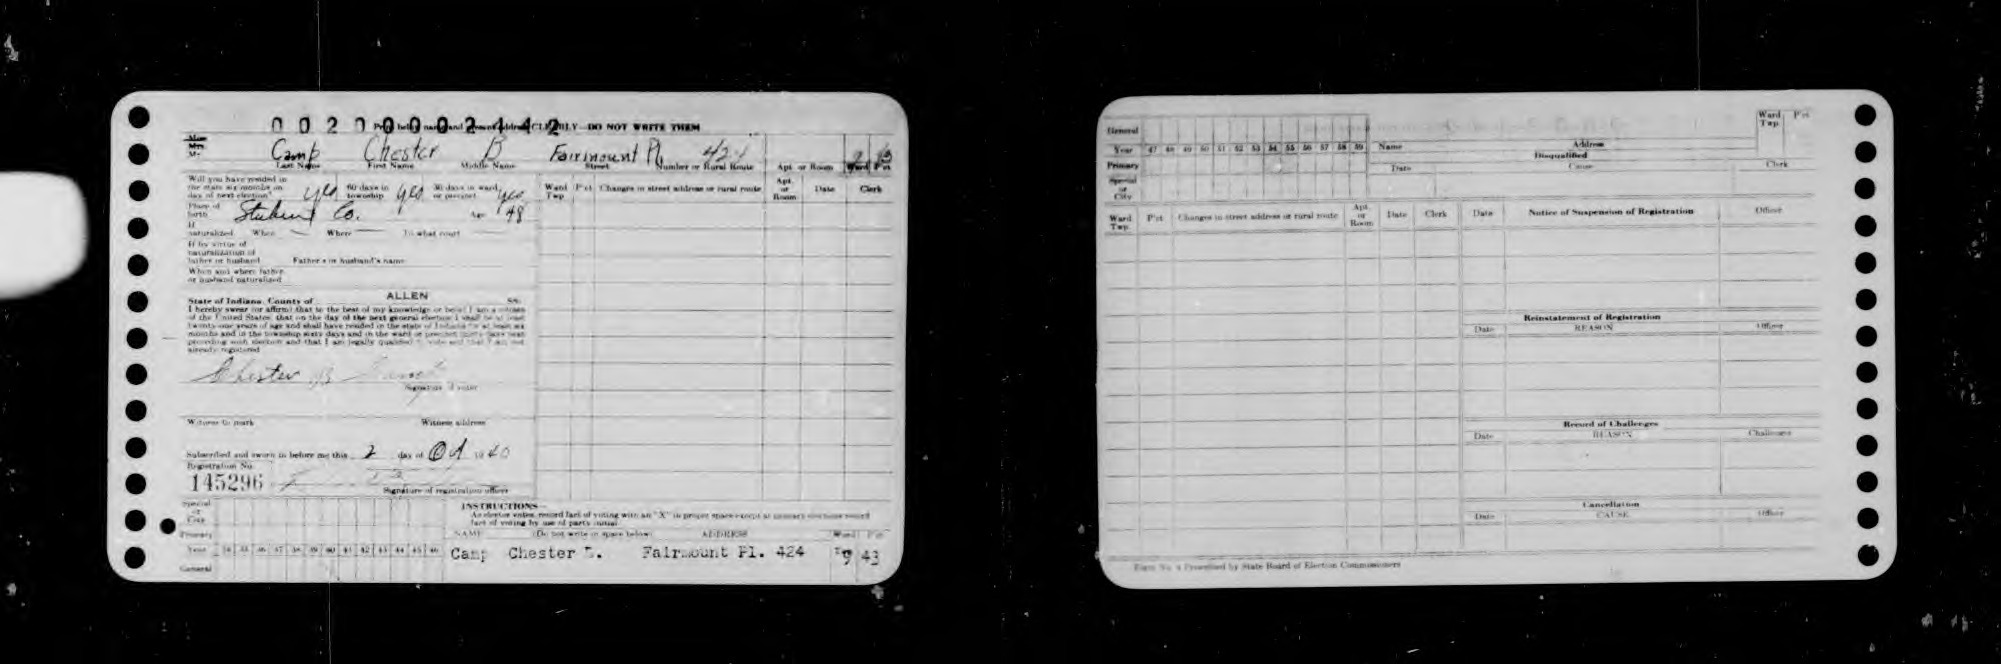 00200002442
Print below name and present address CLEARLY—DO NOT WRITE THEM
Mrs.
Mr.
Camp Chester B Fairmount Pl 424
Last Name First Name Middle Name Street Number or Rural Route Apt. or Room Ward Pct
Will you have resided in
the state six months on
day of next election? yes 60 days in township yes 30 days in ward or precinct yes
Place of
birth Steuben Co. Age 48
If
naturalized When Where To what court
If by virtue of
naturalization of
father or husband Father's or husband's name
When and where father
or husband naturalized
State of Indiana, County of ALLEN SS:
I hereby swear (or affirm) that to the best of my knowledge or belief I am a citizen
of the United States, that on the day of the next general election I shall be at least
twenty-one years of age and shall have resided in the state of Indiana for at least six
months and in the township sixty days and in the ward or precinct thirty days next
preceding such election and that I am legally qualified to vote and that I am not
already registered
Chester B Camp
Signature of voter
Witness to mark Witness address
Subscribed and sworn to before me this 2 day of Oct 1940
Registration No.
145296
Signature of registration officer
Ward Twp Pct Changes in street address or rural route Apt. or Room Date Clerk
Special
or
City
Primary
Year 34 35 36 37 38 39 40 41 42 43 44 45 46
General
INSTRUCTIONS—
As elector votes, record fact of voting with an "X" in proper space except at primary elections record
fact of voting by use of party initial
NAME (Do not write in space below) ADDRESS Ward Pct
Camp Chester Fairmount Pl. 424 9 43
General
Year 47 48 49 50 51 52 53 54 55 56 57 58 59
Primary
Special
or
City
Name Address Ward Twp Pct
Disqualified
Date Cause Clerk
Ward Twp. Pct Changes in street address or rural route Apt. or Room Date Clerk
Date Notice of Suspension of Registration Officer
Reinstatement of Registration
Date REASON Officer
Record of Challenges
Date REASON Challenger
Cancellation
Date CAUSE Officer
Form No. 4 Prescribed by State Board of Election Commissioners